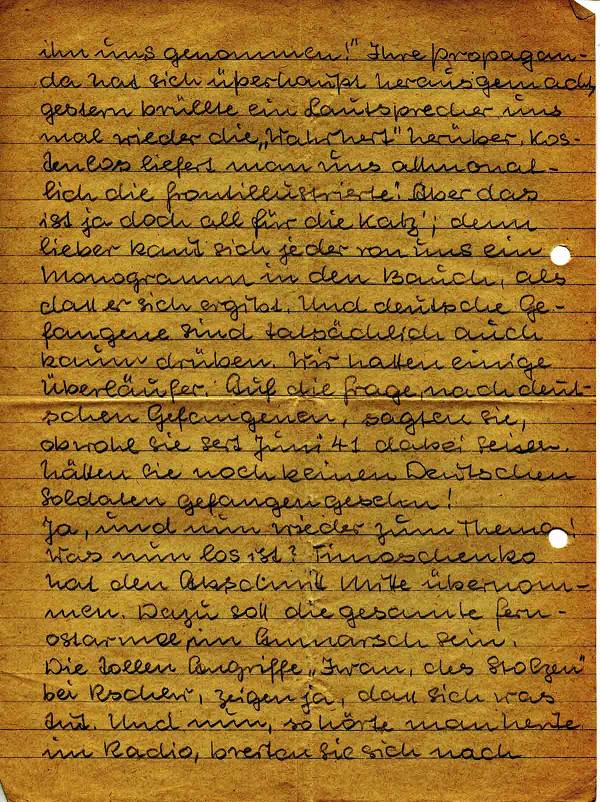 ihn uns genommen!" Ihre Propagan-
da hat sich überhaupt herausgemacht,
gestern brüllte ein Lautsprecher uns
mal wieder die „Wahrheit" herüber. Kos-
tenlos liefert man uns allmonat-
lich die Frontillustrierte! Aber das
ist ja doch all für die Katz'; denn
lieber kaut sich jeder von uns ein
Monogramm in den Bauch, als
daß er sich ergibt. Und deutsche Ge-
fangene sind tatsächlich auch
kaum drüben. Wir hatten einige
Überläufer. Auf die Frage nach deut-
schen Gefangenen, sagten sie,
obwohl sie seit Juni 41 dabei seien.
hätten sie noch keinen Deutschen
Soldaten gefangen gesehn!
Ja, und nun wieder zum Thema!
Was nun los ist? Timoschenko
hat den Abschnitt Mitte übernom-
men. Dazu soll die gesamte Fern-
ostarmee im Anmarsch sein.
Die tollen Angriffe „Iwan, des Stolzen"
bei Rschew, zeigen ja, daß sich was
tut. Und nun, so hörte man heute
im Radio, breiten sie sich nach